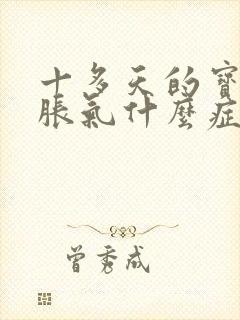 十多天的寶
脹氣什麼症
曾秀成